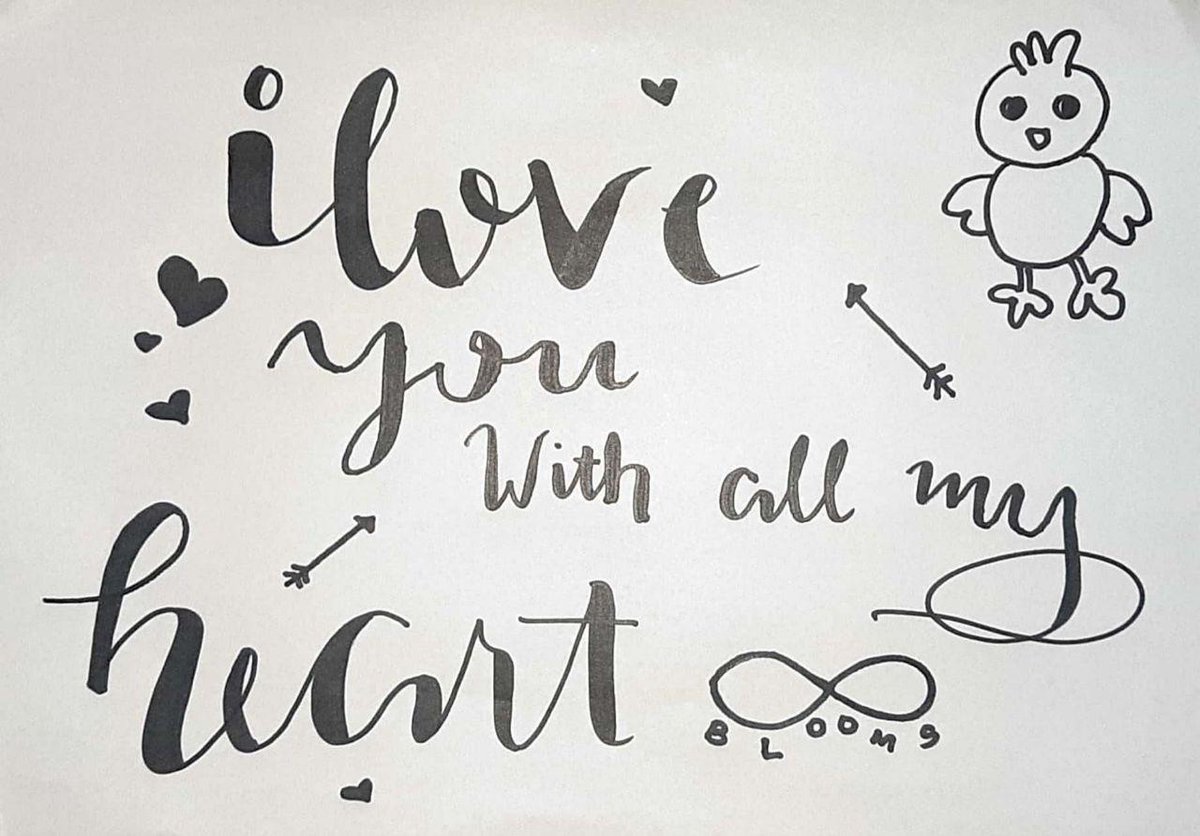 i love
you
With all my
heart
BLOOMS